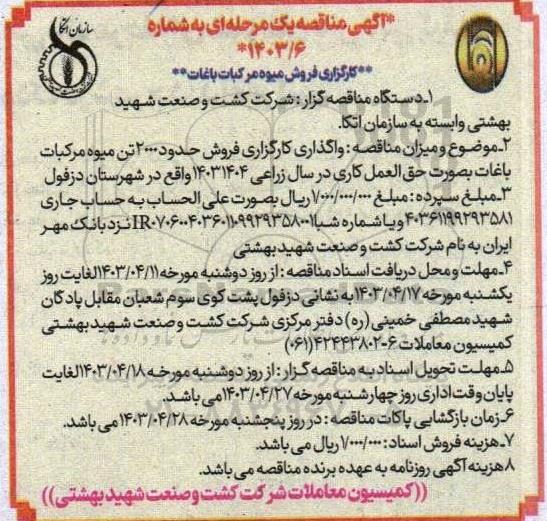 سازمان اتکا
*آگهی مناقصه یک مرحله ای به شماره
۱۴۰۳/۶*
**کارگزاری فروش میوه مرکبات باغات**
۱ـ دستگاه مناقصه گزار : شرکت کشت و صنعت شهید
بهشتی وابسته به سازمان اتکا.
۲ـ موضوع و میزان مناقصه : واگذاری کارگزاری فروش حدود ۲۰۰۰ تن میوه مرکبات
باغات بصورت حق العمل کاری در سال زراعی ۱۴۰۳۱۴۰۴ واقع در شهرستان دزفول
۳ـ مبلغ سپرده : مبلغ ۱/۰۰۰/۰۰۰/۰۰۰ ریال بصورت علی الحساب به حساب جاری
۴۰۳۶۱۱۹۹۲۹۳۵۸۱ و یا شماره شبا IR۰۷۰۶۰۰۴۰۳۶۰۱۱۰۹۹۲۹۳۵۸۰۰۱ نزد بانک مهر
ایران به نام شرکت کشت و صنعت شهید بهشتی
۴ـ مهلت و محل دریافت اسناد مناقصه : از روز دوشنبه مورخه ۱۴۰۳/۰۴/۱۱ لغایت روز
یکشنبه مورخه ۱۴۰۳/۰۴/۱۷ به نشانی دزفول پشت کوی سوم شعبان مقابل پادگان
شهید مصطفی خمینی (ره) دفتر مرکزی شرکت کشت و صنعت شهید بهشتی
کمیسیون معاملات ۶-۴۲۴۴۳۸۰۲(۰۶۱)
۵ـ مهلت تحویل اسناد به مناقصه گزار : از روز دوشنبه مورخه ۱۴۰۳/۰۴/۱۸ لغایت
پایان وقت اداری روز چهارشنبه مورخه ۱۴۰۳/۰۴/۲۷ می باشد.
۶ـ زمان بازگشایی پاکات مناقصه : در روز پنجشنبه مورخه ۱۴۰۳/۰۴/۲۸ می باشد.
۷ـ هزینه فروش اسناد : ۱/۰۰۰/۰۰۰ ریال می باشد.
۸ هزینه آگهی روزنامه به عهده برنده مناقصه می باشد.
((کمیسیون معاملات شرکت کشت و صنعت شهید بهشتی))